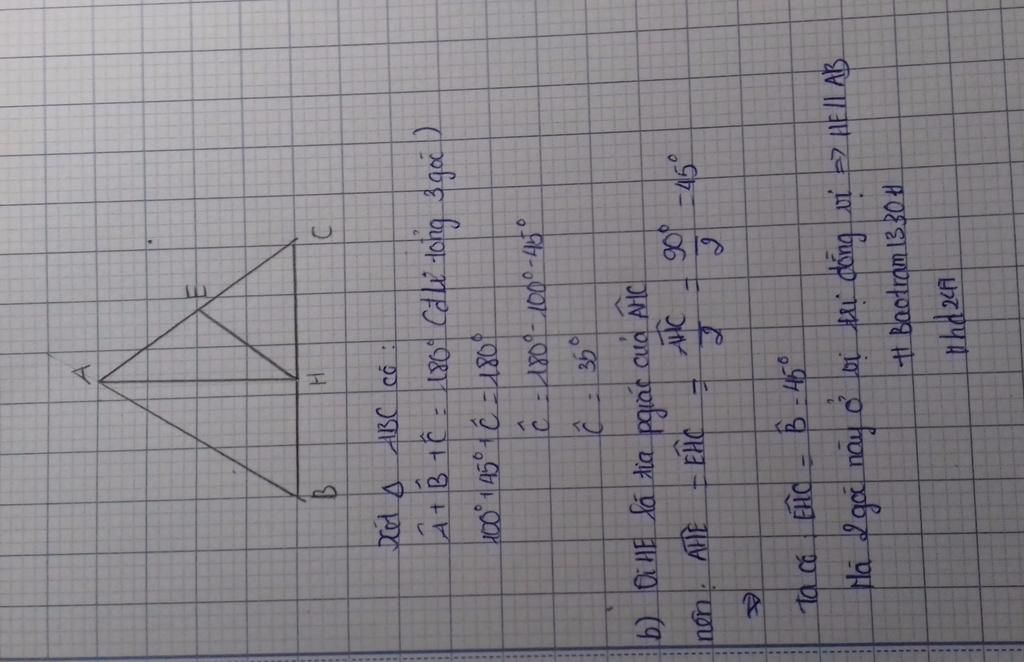 A
E
B
H
C
Xét Δ ABC có :
Â + B̂ + Ĉ = 180° (đlí tổng 3 góc)
100° + 45° + Ĉ = 180°
Ĉ = 180° - 100° - 45°
Ĉ = 35°
b) Vì HE là tia pgiác của AHC
nên : AHE = EHC = AHC/2 = 90°/2 = 45°
=>
Ta có : EHC = B̂ = 45°
Mà 2 góc này ở vị trí đồng vị => HE // AB
# Baotram1330 #
# hd247